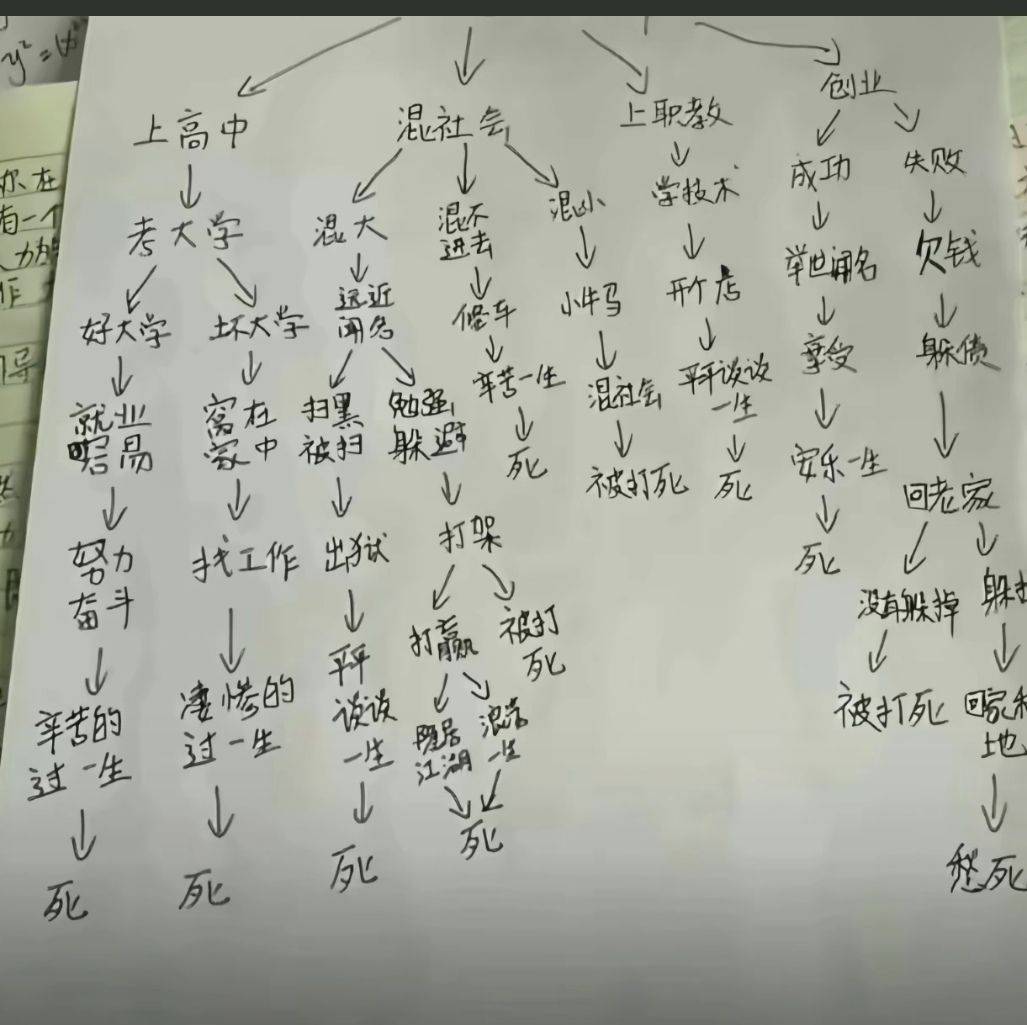 y² =
上高中
混社会
上职教
创业
考大学
混大
混不
进去
混小
学技术
成功
失败
好大学
坏大学
远近
闻名
修车
小牛马
开个店
举世闻名
欠钱
就业
容易
窝在
家中
扫黑
被扫
勉强
躲避
辛苦一生
混社会
平平谈谈
一生
享受
躲债
努力
奋斗
找工作
出狱
打架
死
被打死
死
安乐一生
回老家
辛苦的
过一生
凄惨的
过一生
平平
谈谈
一生
打赢
被打
死
死
没有躲掉
躲
隐居
江湖
浪荡
一生
被打死
回家种
地
死
死
死
死
愁死
你在
有一个
作
导